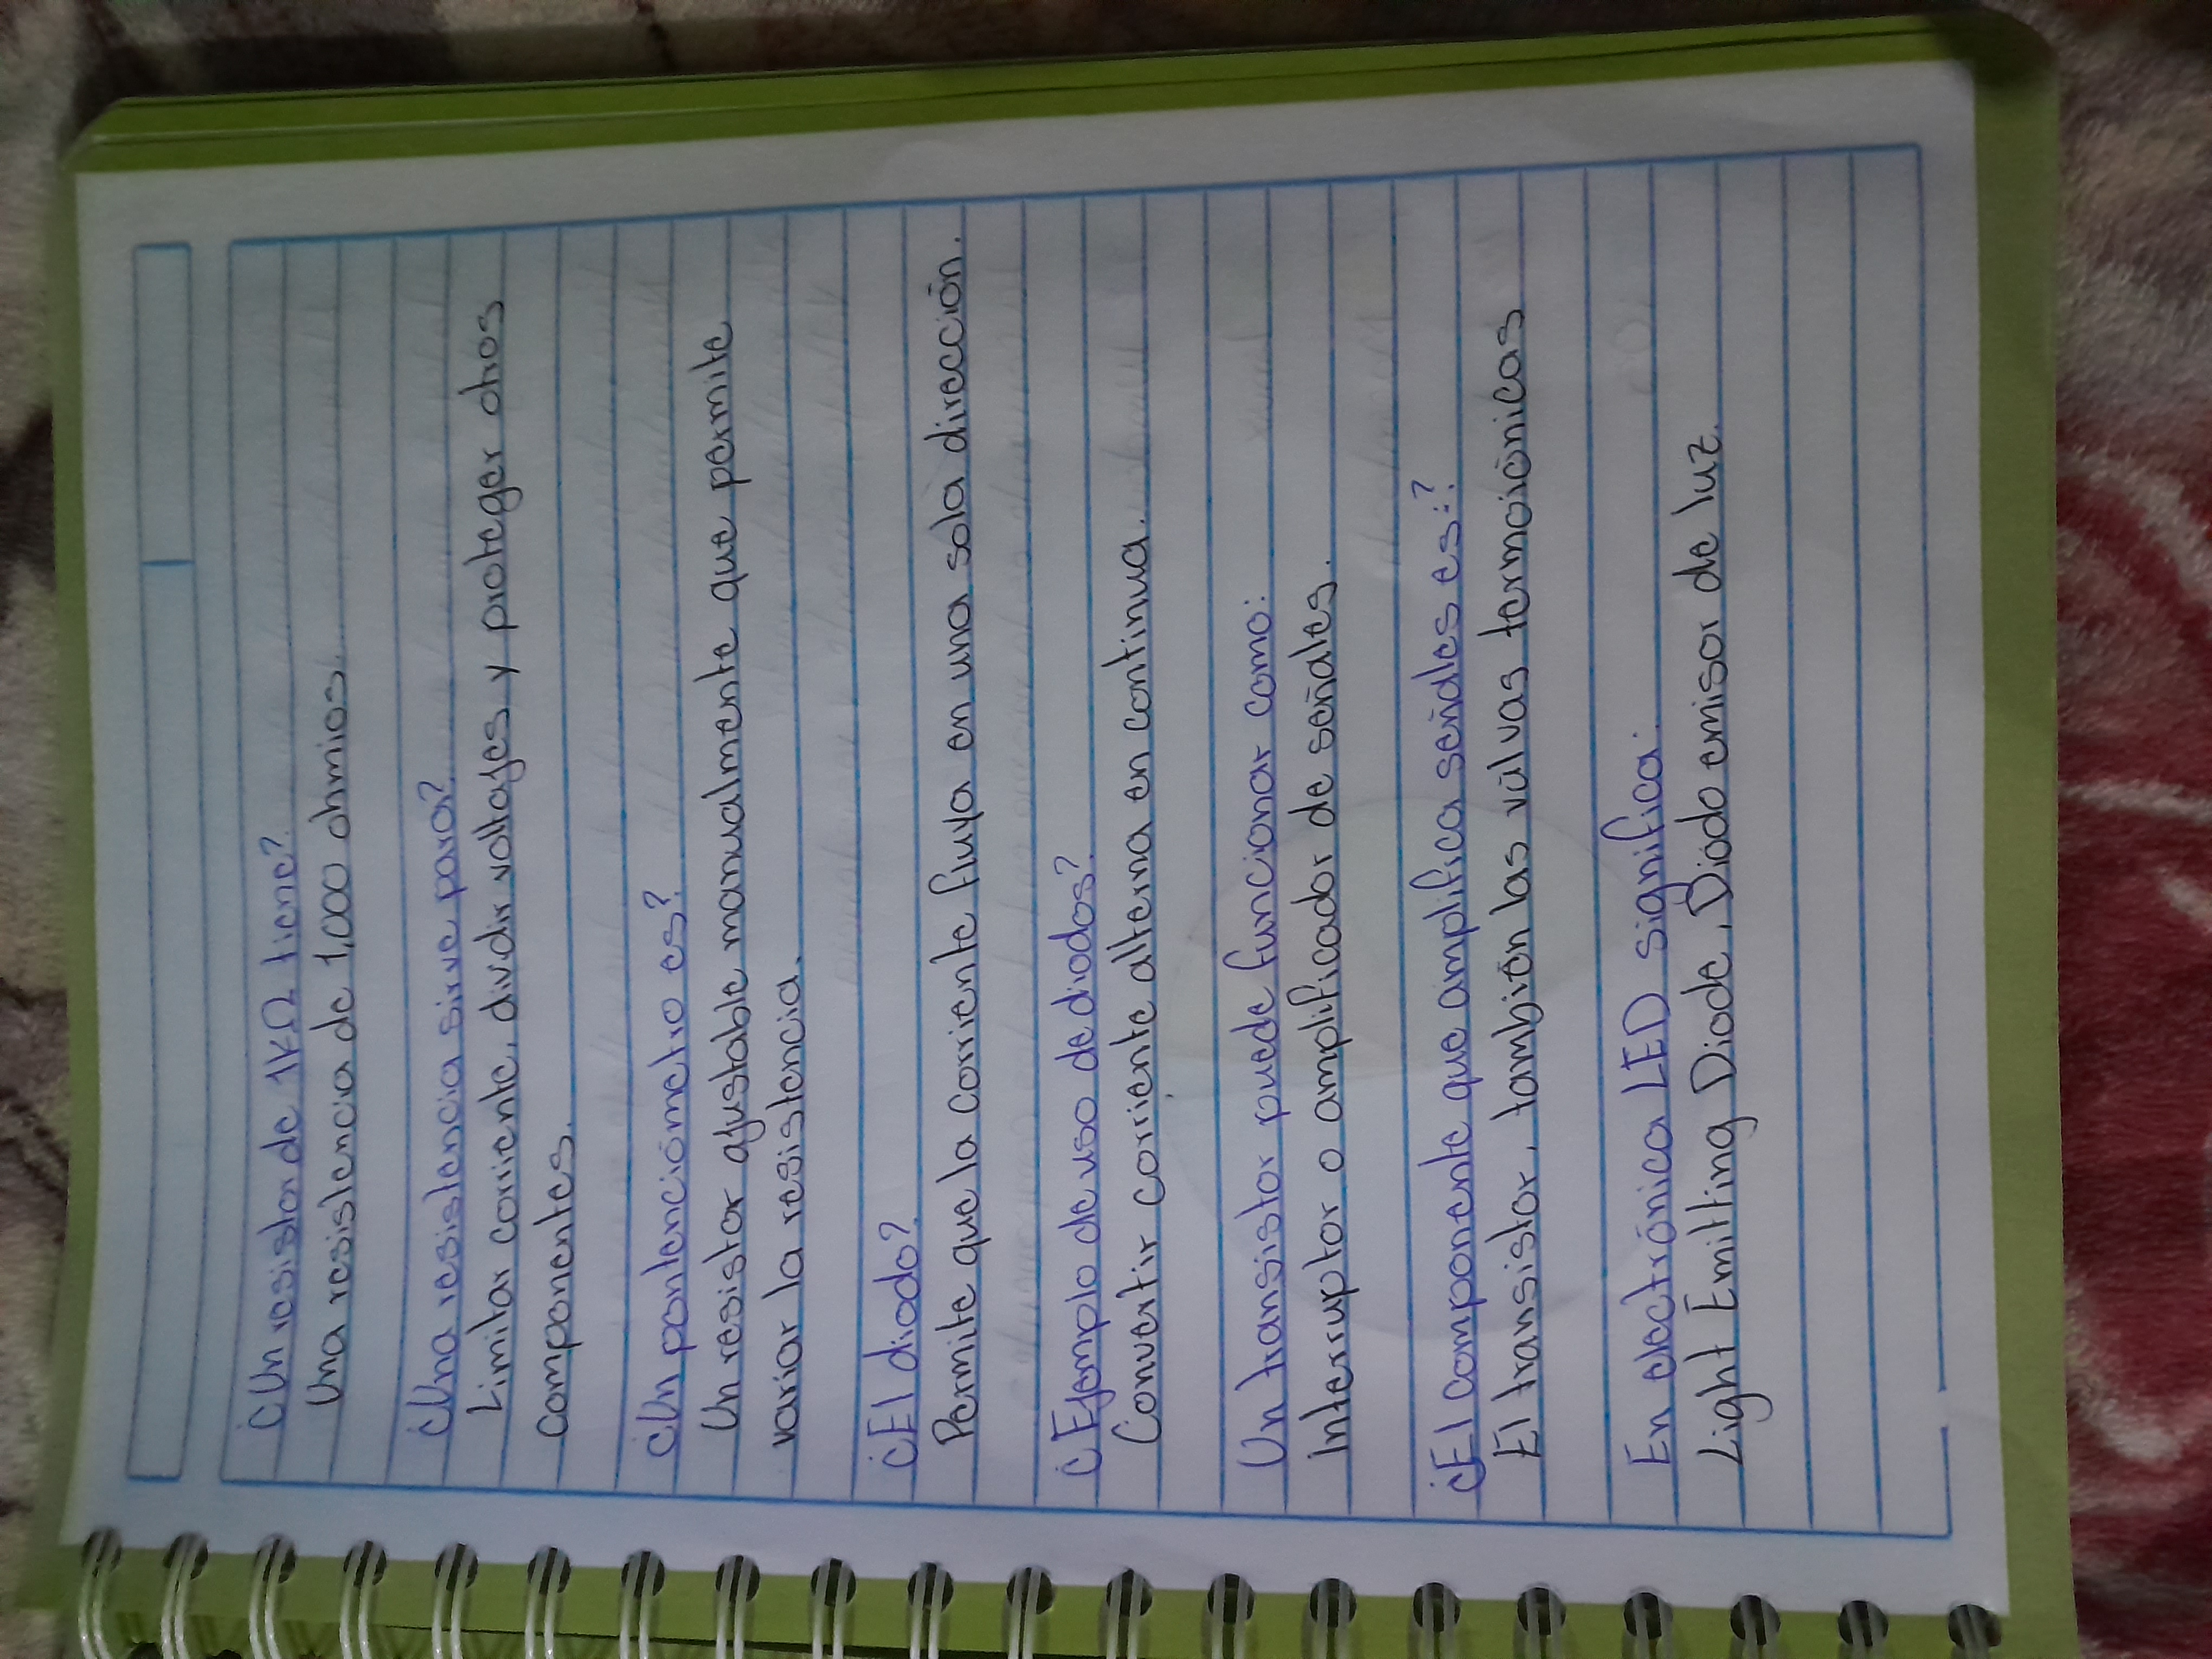 ¿Un resistor de 1kΩ tiene?
Una resistencia de 1,000 ohmios.
¿Una resistencia sirve para?
Limitar corriente, dividir voltajes y proteger otros
componentes.
¿Un pontenciómetro es?
Un resistor ajustable manualmente que permite
variar la resistencia.
¿El diodo?
Permite que la corriente fluya en una sola dirección.
¿Ejemplo de uso de diodos?
Convertir corriente alterna en continua.
Un transistor puede funcionar como:
Interruptor o amplificador de señales.
¿El componente que amplifica señales es:?
El transistor, también las válvas termoiónicas
En electrónica LED significa:
Light Emitting Diode, Diodo emisor de luz.